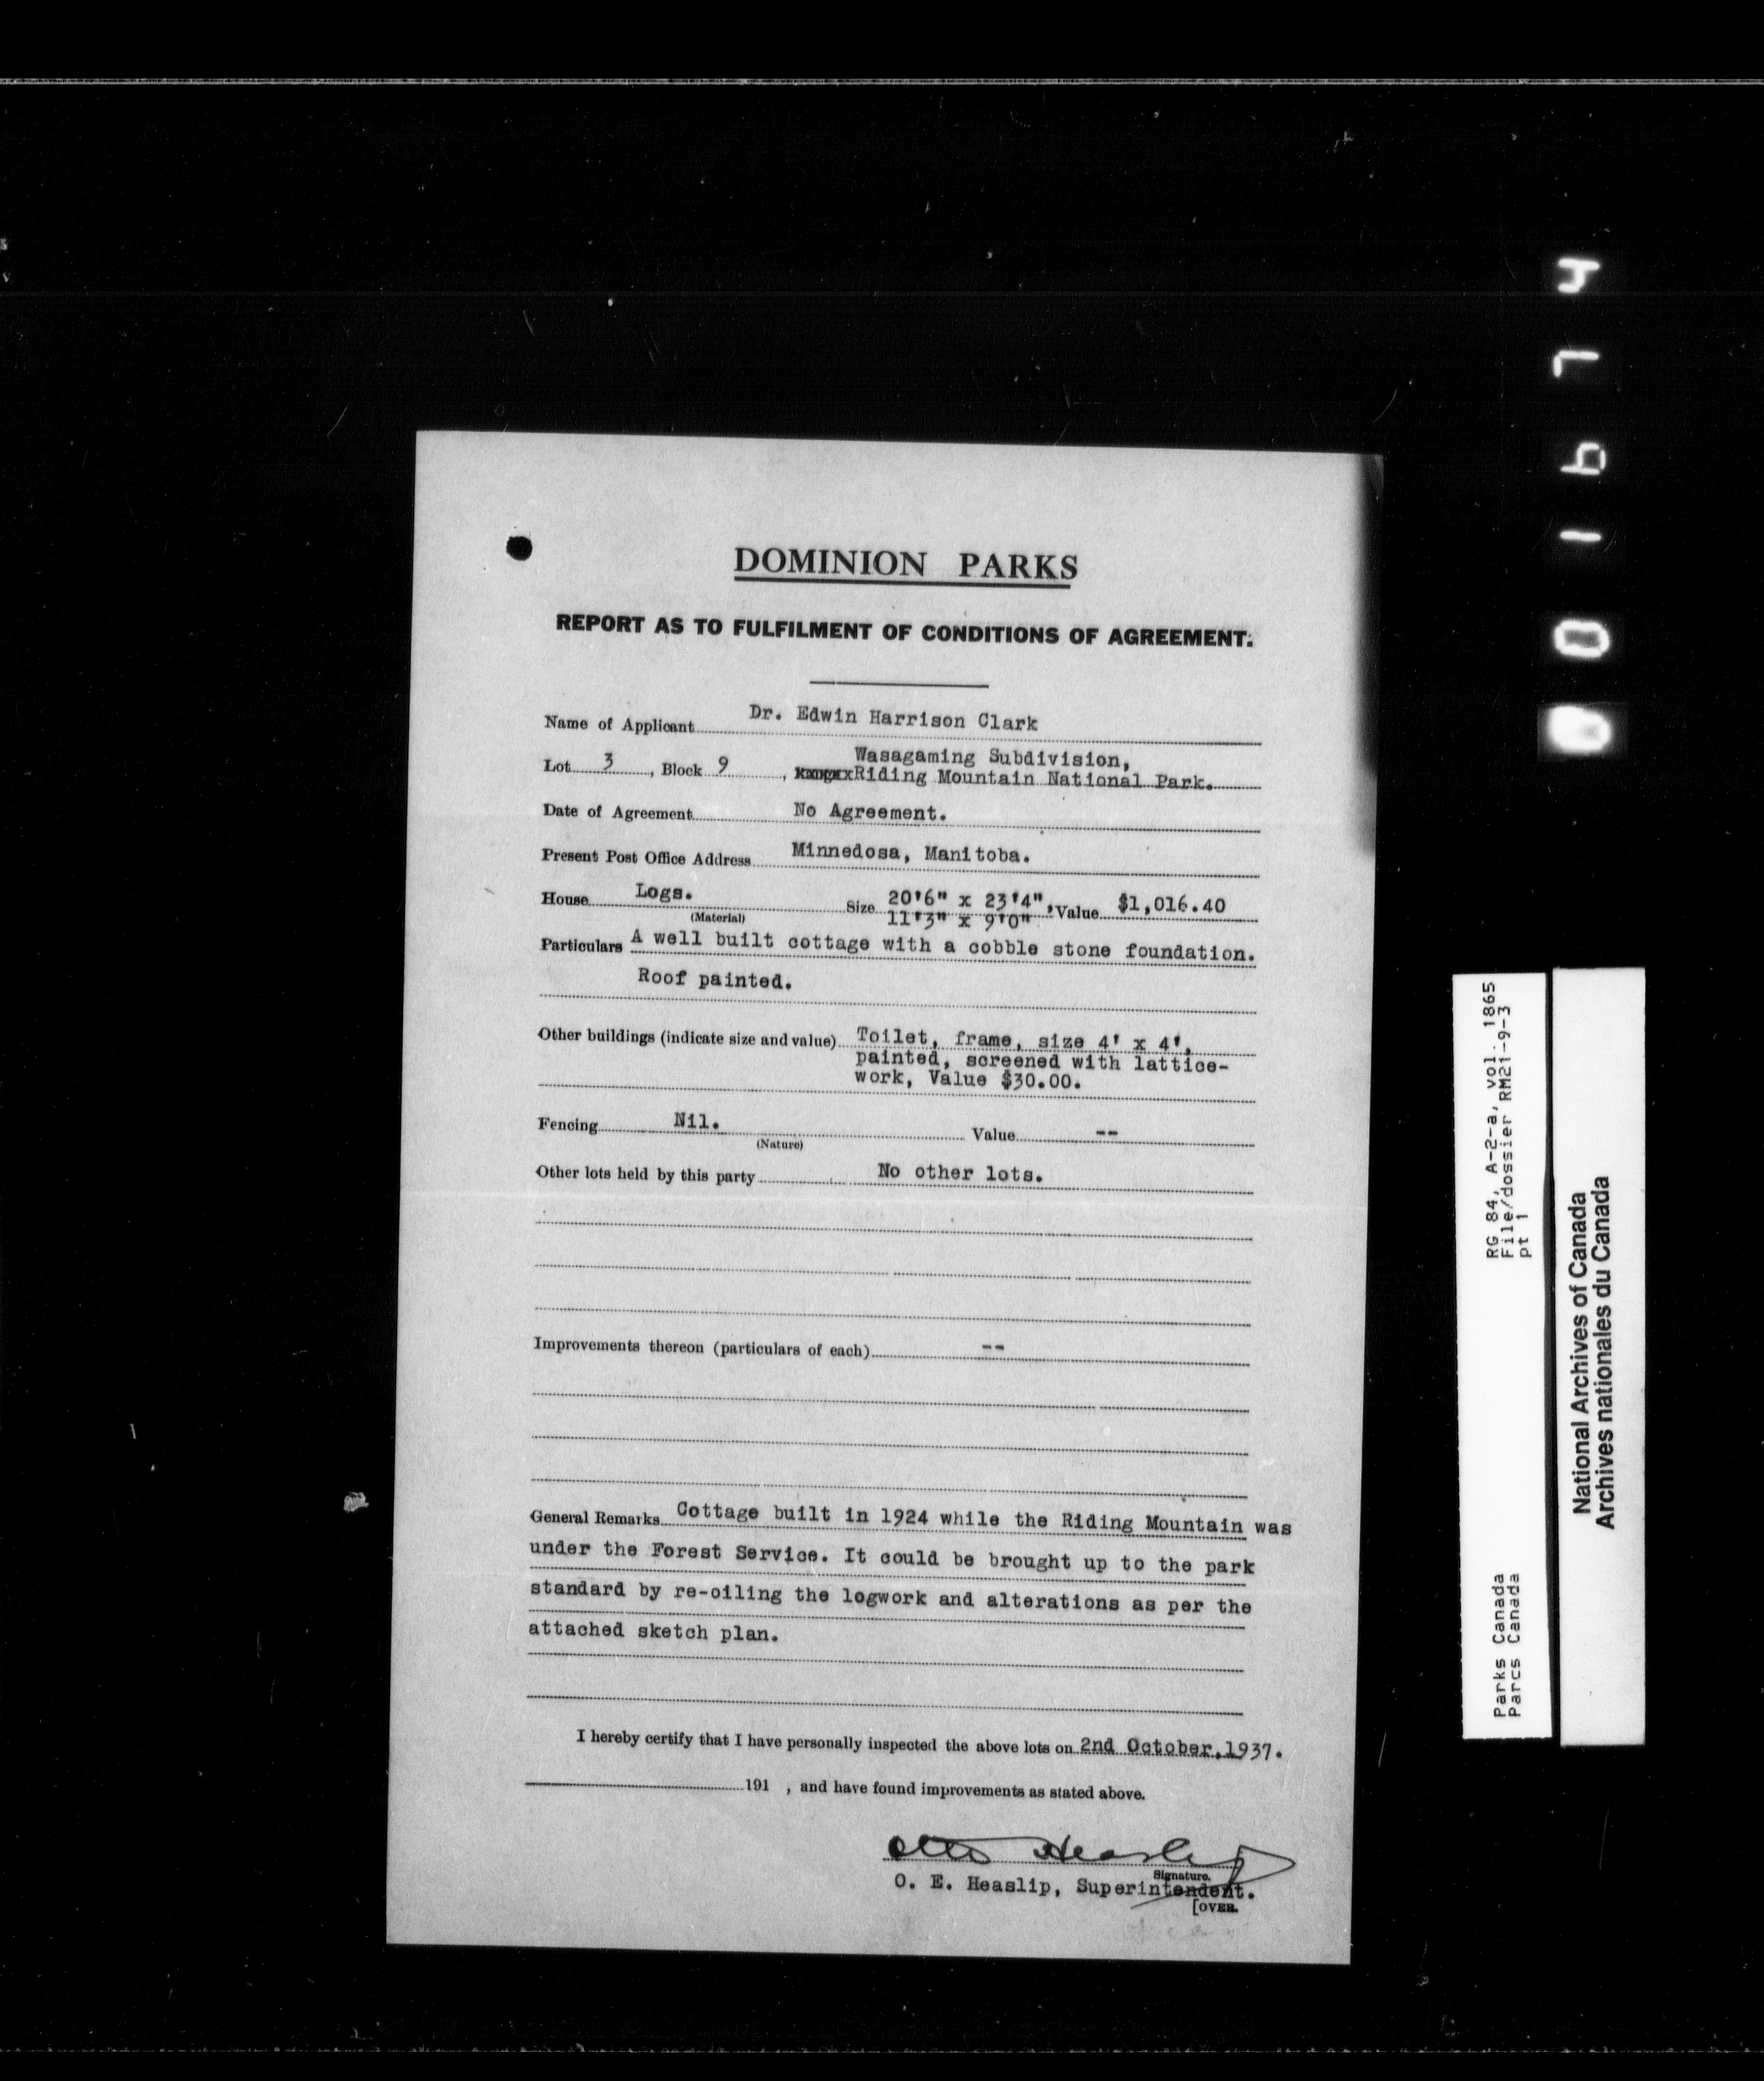 DOMINION PARKS
REPORT AS TO FULFILMENT OF CONDITIONS OF AGREEMENT.
Name of Applicant Dr. Edwin Harrison Clark
Wasagaming Subdivision,
Lot 3, Block 9, Riding Mountain National Park.
Date of Agreement No Agreement.
Present Post Office Address Minnedosa, Manitoba.
House Logs. Size 20'6" x 23'4", Value $1,016.40
(Material) 11'3" x 9'0"
Particulars A well built cottage with a cobble stone foundation.
Roof painted.
Other buildings (indicate size and value) Toilet, frame, size 4' x 4',
painted, screened with lattice-
work, Value $30.00.
Fencing Nil. Value --
(Nature)
Other lots held by this party No other lots.
Improvements thereon (particulars of each) --
General Remarks Cottage built in 1924 while the Riding Mountain was
under the Forest Service. It could be brought up to the park
standard by re-oiling the logwork and alterations as per the
attached sketch plan.
I hereby certify that I have personally inspected the above lots on 2nd October, 1937.
191 , and have found improvements as stated above.
Otto Heaslip
Signature.
O. E. Heaslip, Superintendent.
[OVER.
RG 84, A-2-a, vol. 1865
File/dossier RM21-9-3
pt 1
Parks Canada
Parcs Canada
National Archives of Canada
Archives nationales du Canada